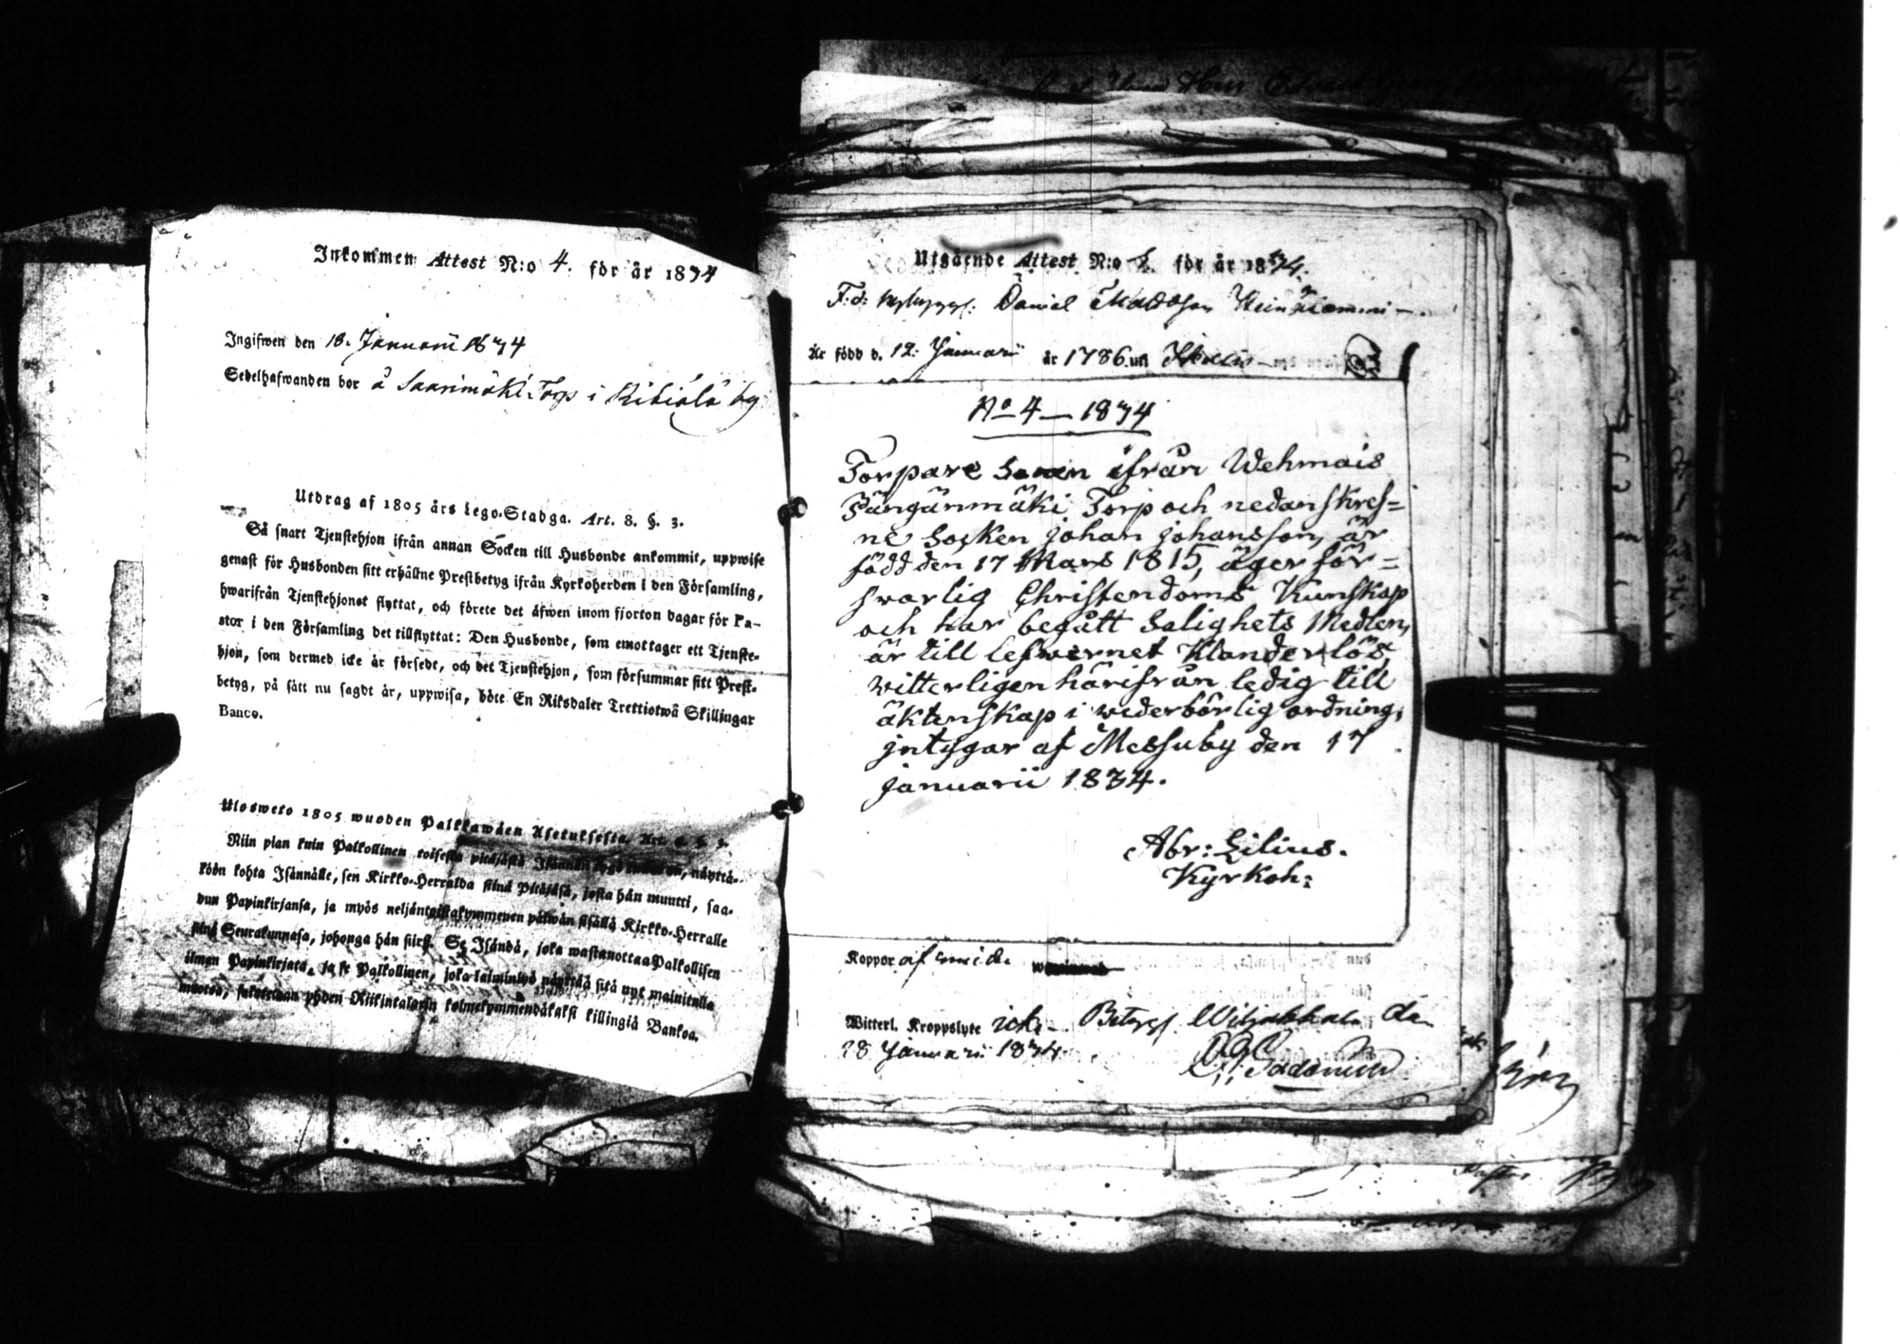 Inkommen Attest N:o 4. för år 1834
Ingifwen den 18. Januarii 1834
Sedelhafwanden bor å Saarimäki Torp i Ribiälä by
Utdrag af 1805 års Lego-Stadga. Art. 8. §. 3.
Så snart Tjenstehjon ifrån annan Socken till Husbonde ankommit, uppwise
genast för Husbonden sitt erhållne Prestbetyg ifrån Kyrkoherden i den Församling,
hwarifrån Tjenstehjonet flyttat, och förete det äfwen inom fjorton dagar för Pa-
stor i den Församling det tillflyttat: Den Husbonde, som emottager ett Tjenste-
hjon, som dermed icke är försedt, och det Tjenstehjon, som försummar sitt Prest-
betyg, på sätt nu sagdt är, uppwisa, böte En Riksdaler Trettiotwå Skillingar
Banco.
Ulosweto 1805 wuoden Palkkawäen Asetuksesta. Art. 8. §. 3.
Niin pian kuin Palkollinen toisesta pitäjästä Isännän tygö tullut on, näyttä-
köön kohta Isännälle, sen Kirkko-Herralda siinä Pitäjäsä, josta hän muutti, saa-
dun Papinkirjansa, ja myös neljäntoistakymmenen päiwän sisällä Kirkko-Herralle
siinä Seurakunnasa, johonga hän siirsi. Se Isändä, joka wastanottaa Palkollisen
ilman Papinkirjata, ja se Palkollinen, joka laiminlyö näyttää sitä nyt mainitulla
muotoa, sakotetaan yhden Riikintalarin kolmekymmendäkaksi killingiä Bankoa.
Utgående Attest N:o för år 1834.
F:d: Daniel Mattsson
Är född d. 12. Januarii år 1786. uti
No 4 — 1834
Torpare Sonen ifrån Wehmais
Pängänmäki Torp och nedanskref=
ne Socken Johan Johansson, är
född den 17 Mars 1815, äger för=
svarlig Christendoms Kunskap
och har begått Salighets Medlen,
är till lefwernet Klanderlös,
vitterligen härifrån ledig till
äktenskap i wederbörlig ordning,
intygar af Messuby den 17
Januarii 1834.
Abr: Lilius.
Kyrkoh:
Koppor af
Witterl. Kroppslyte icke Betygr den
28 Januarii 1834.